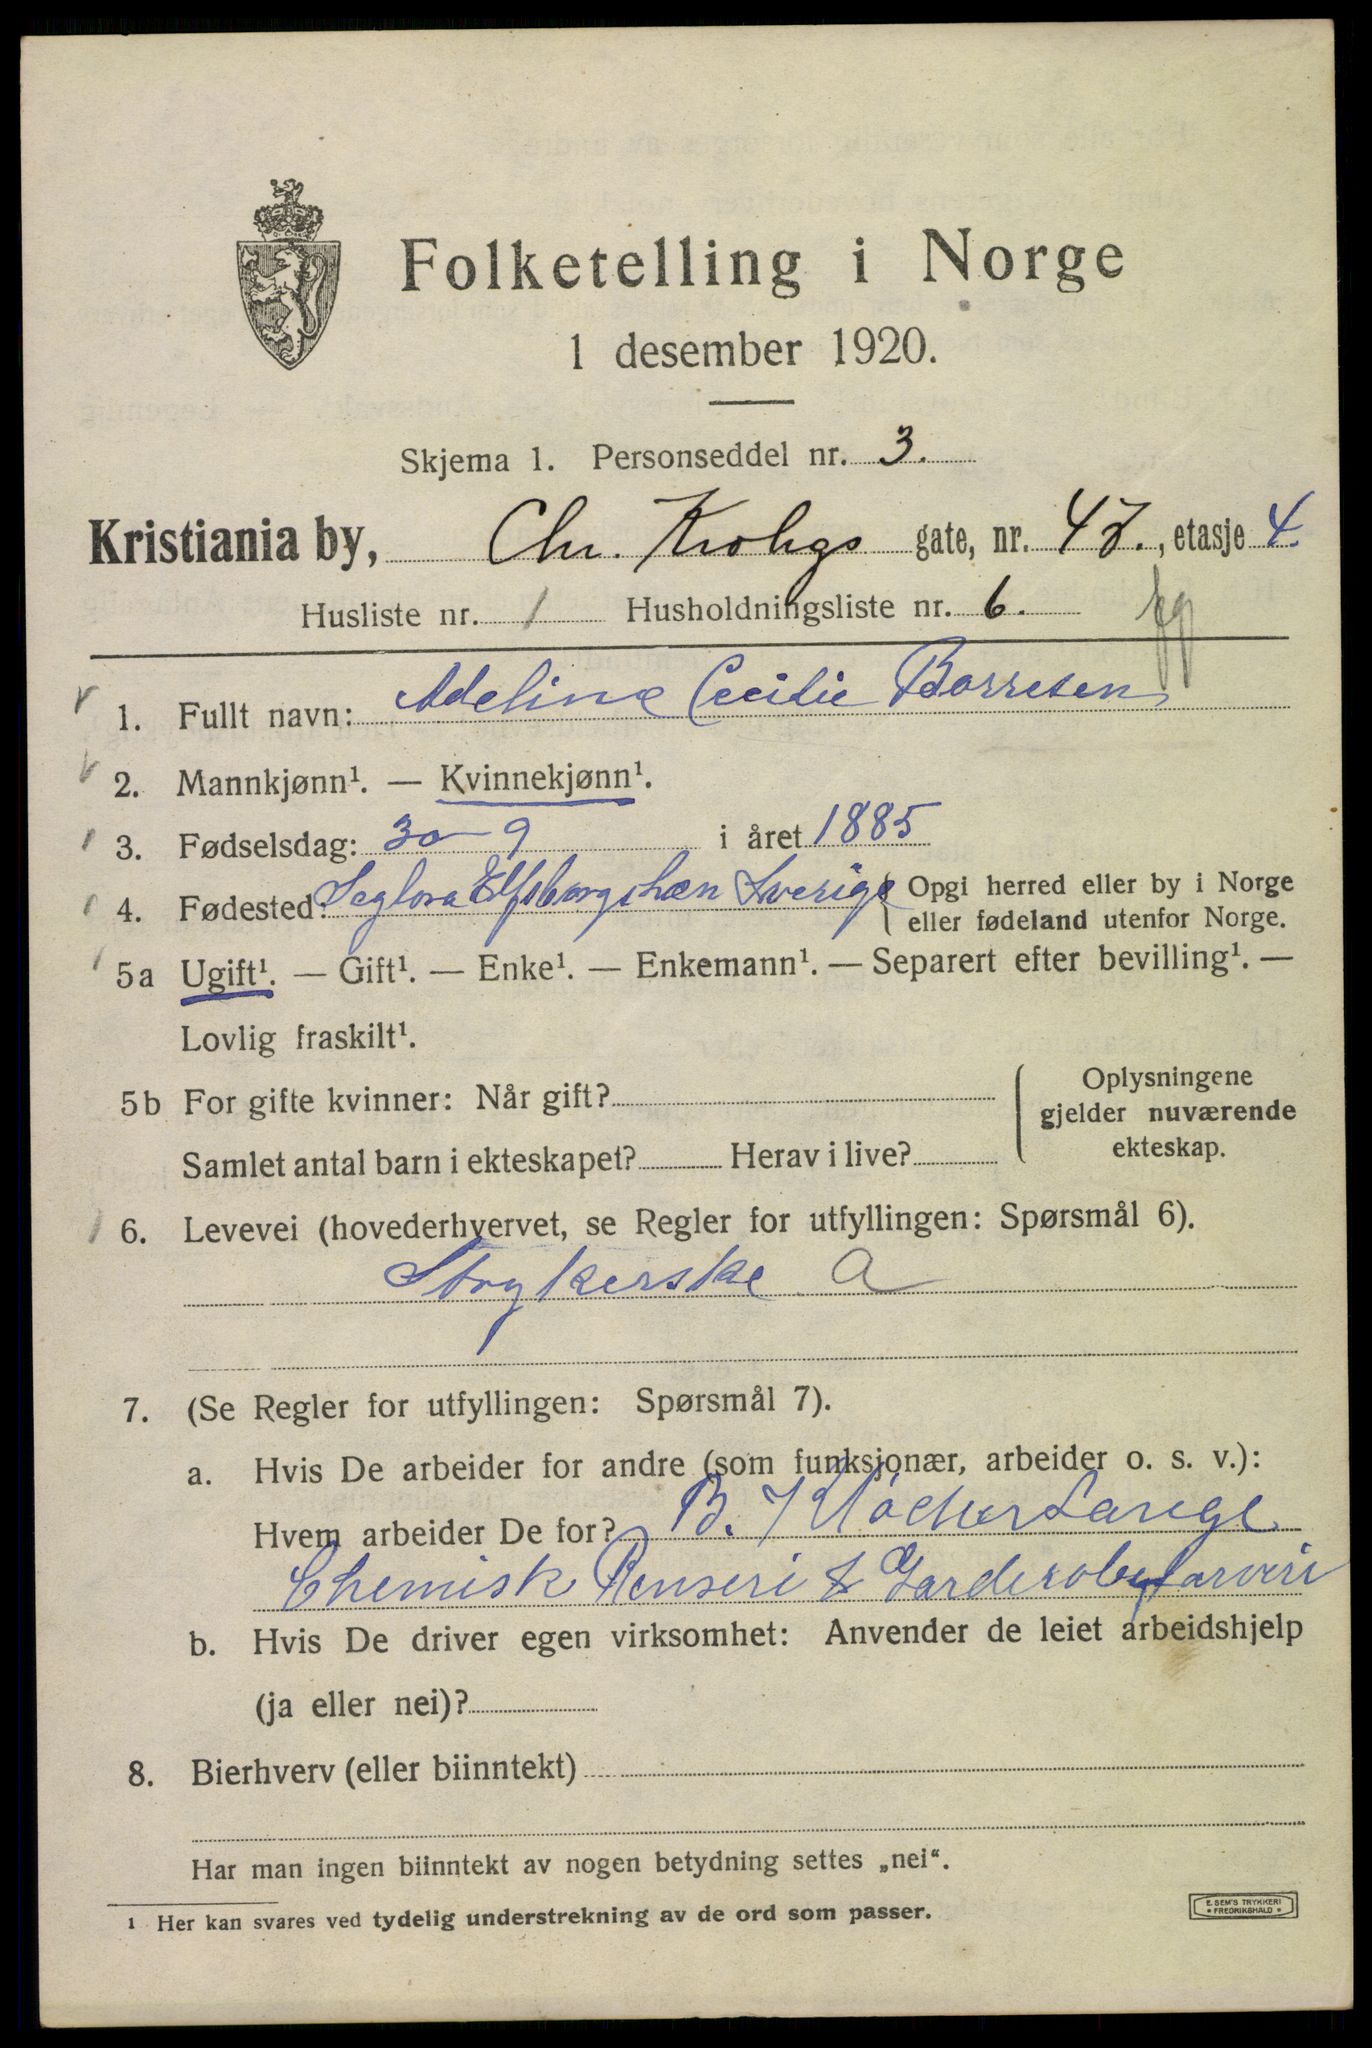 Folketelling i Norge
1 desember 1920.
Skjema 1. Personseddel nr. 3.
Kristiania by, Chr. Krohgs gate, nr. 47., etasje 4.
Husliste nr. 1 Husholdningsliste nr. 6.
1. Fullt navn: Adeline Cecilie Borresen
2. Mannkjønn¹. — Kvinnekjønn¹.
3. Fødselsdag: 30-9 i året 1885
4. Fødested: Seglora Elfsborgs Læn Sverige { Opgi herred eller by i Norge
eller fødeland utenfor Norge.
5a Ugift¹. — Gift¹. — Enke¹. — Enkemann¹. — Separert efter bevilling¹. —
Lovlig fraskilt¹.
5b For gifte kvinner: Når gift?
Samlet antal barn i ekteskapet? Herav i live?
Oplysningene
gjelder nuværende
ekteskap.
6. Levevei (hovederhvervet, se Regler for utfyllingen: Spørsmål 6).
Strykerske a
7. (Se Regler for utfyllingen: Spørsmål 7).
a. Hvis De arbeider for andre (som funksjonær, arbeider o. s. v.):
Hvem arbeider De for? B. Kløcker Lange
Chemisk Renseri & Garderobefarveri
b. Hvis De driver egen virksomhet: Anvender de leiet arbeidshjelp
(ja eller nei)?
8. Bierhverv (eller biinntekt)
Har man ingen biinntekt av nogen betydning settes „nei".
¹ Her kan svares ved tydelig understrekning av de ord som passer.
E. SEM'S TRYKKERI
* FREDRIKSHALD *